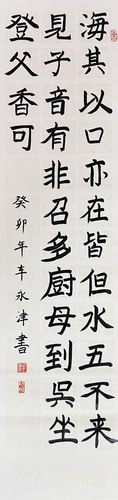 海其以口亦在皆但水五不来
見子音有非召多廚母到吳坐
登父香可
癸卯年车永津書